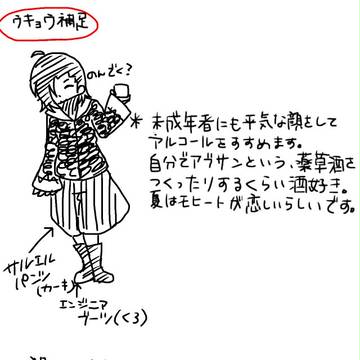 ウキョウ補足
のんでく?
* 未成年者にも平気な顔をして
アルコールをすすめます。
自分でアヴサンという、薬草酒を
つくったりするくらい酒好き。
夏はモヒートが恋しいらしいです。
サルエル
パンツ
(カーキ)
エンジニア
ブーツ(くろ)